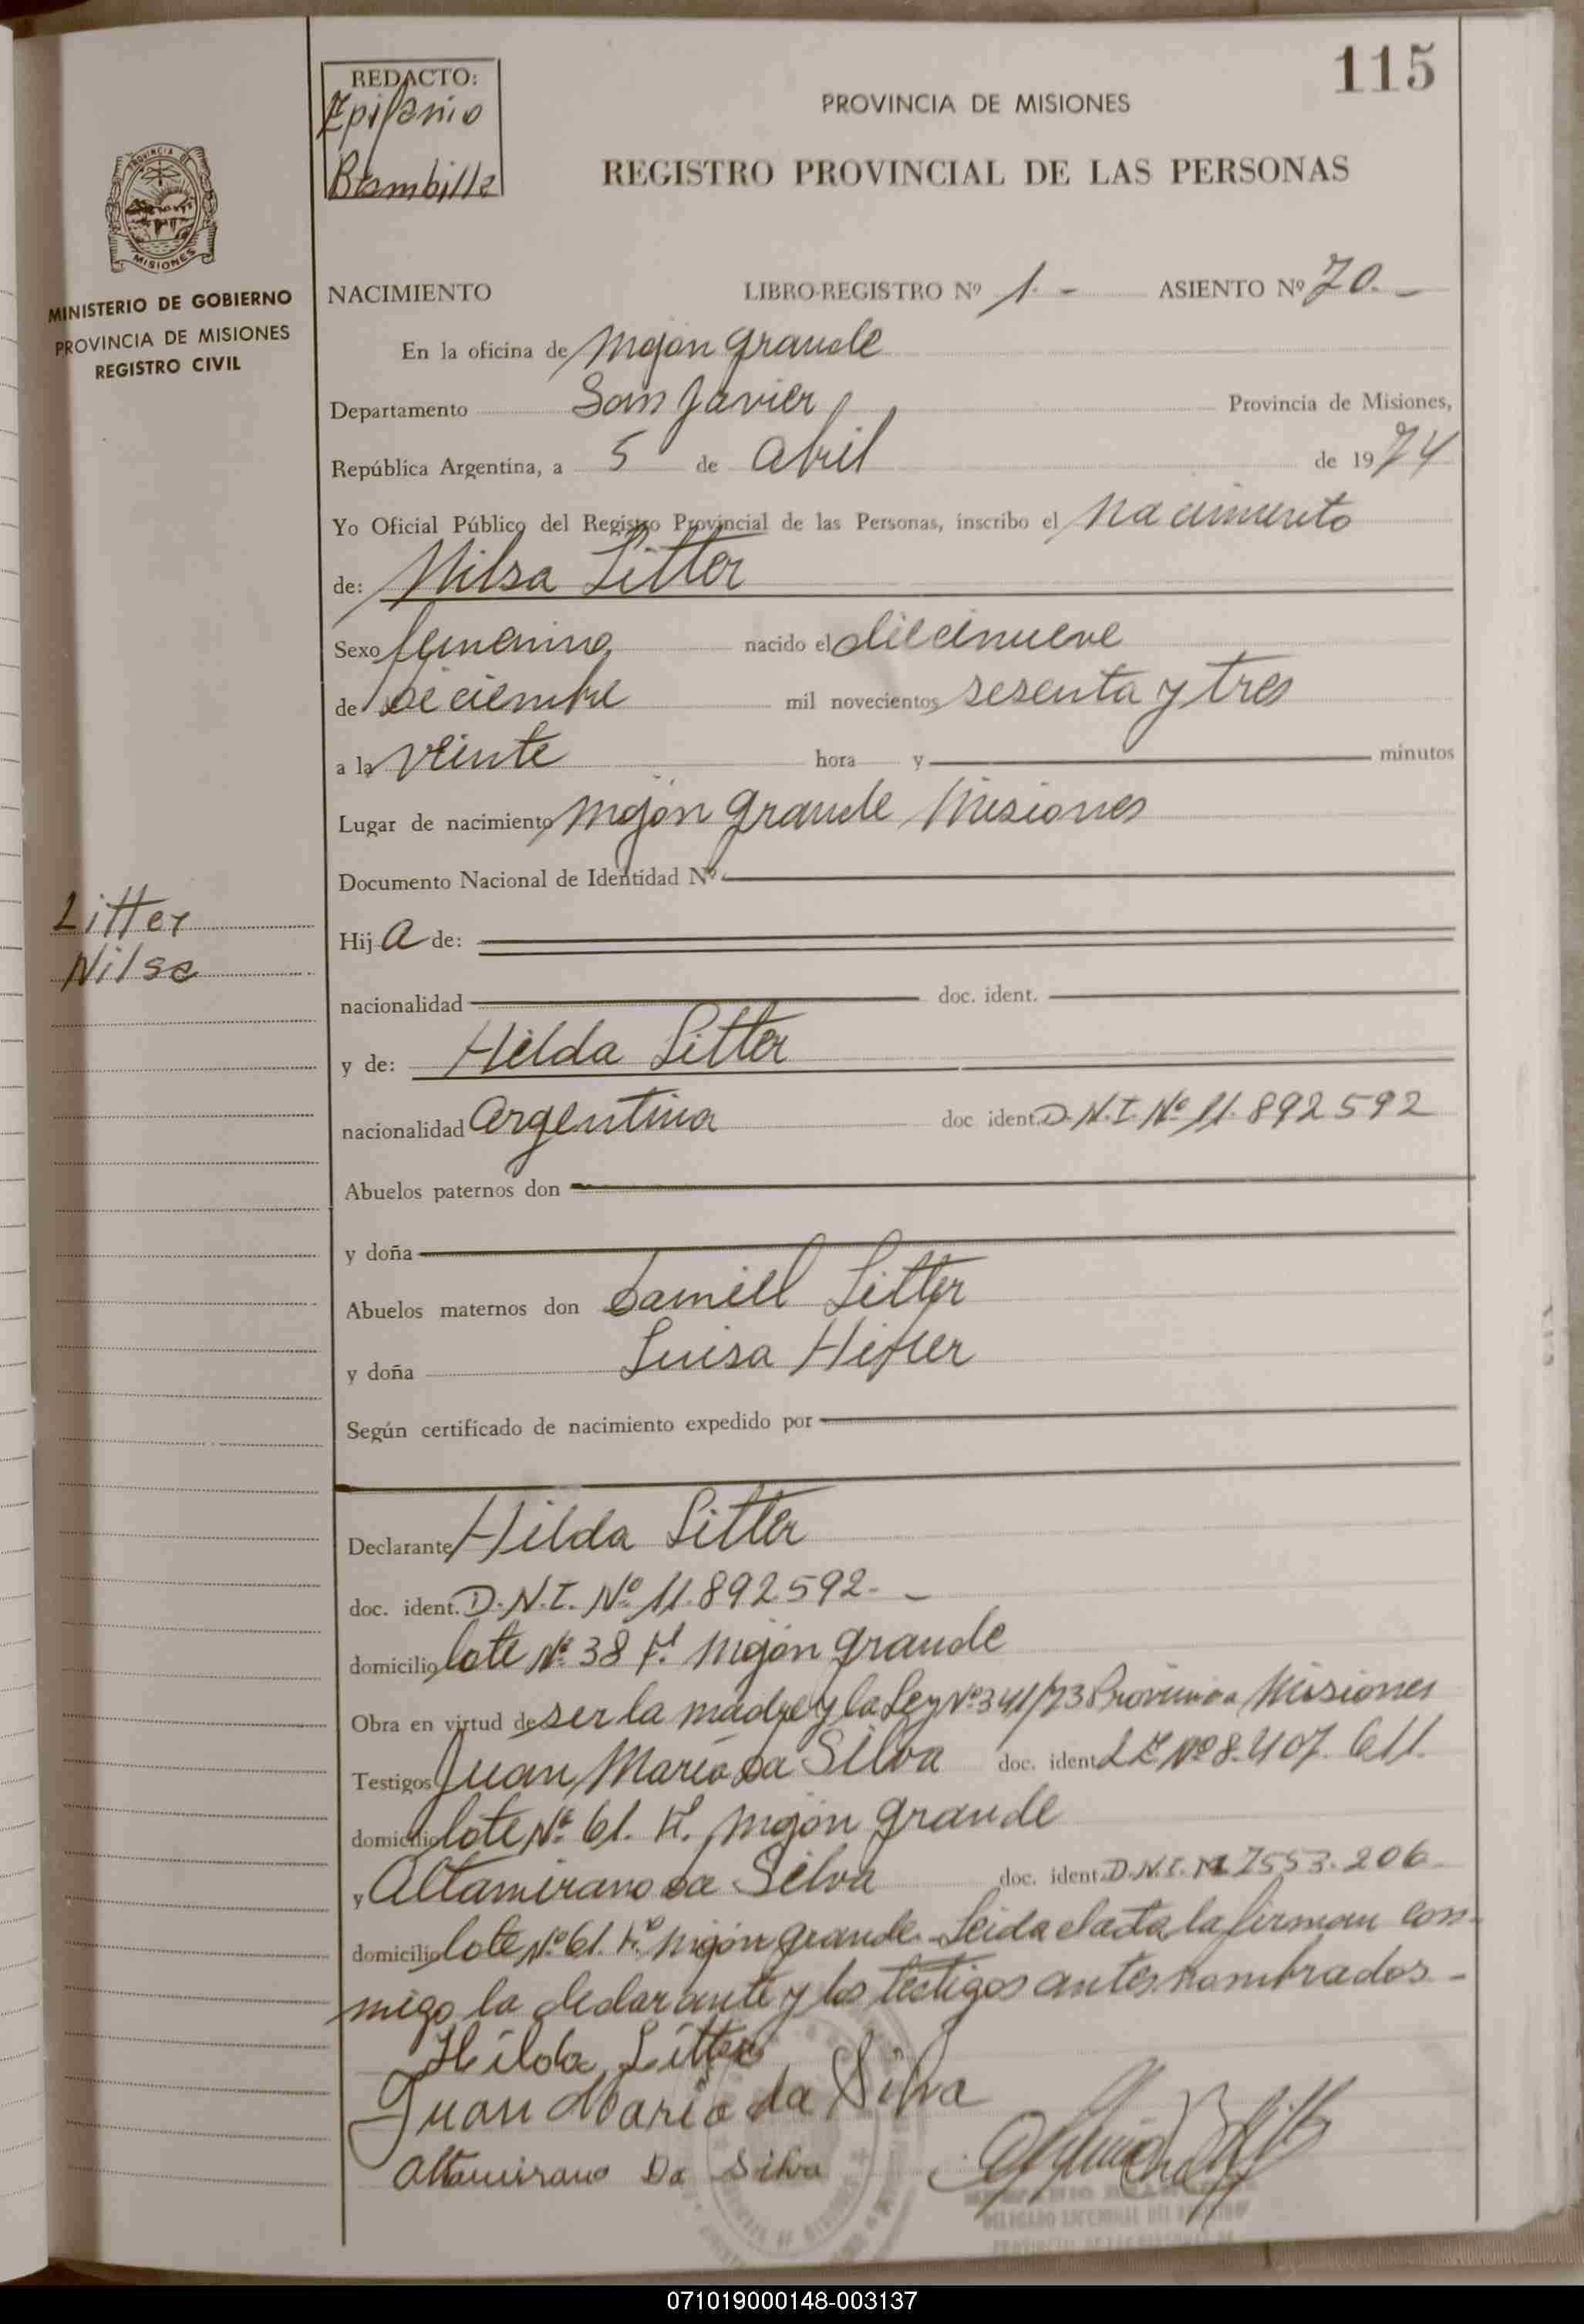 115
REDACTO:
Epifanio
Brambilla
PROVINCIA DE MISIONES
REGISTRO PROVINCIAL DE LAS PERSONAS
PROVINCIA DE
MISIONES
MINISTERIO DE GOBIERNO
PROVINCIA DE MISIONES
REGISTRO CIVIL
NACIMIENTO LIBRO-REGISTRO Nº 1.- ASIENTO Nº 70.-
En la oficina de Mojón grande
Departamento San Javier Provincia de Misiones,
República Argentina, a 5 de Abril de 1974
Yo Oficial Público del Registro Provincial de las Personas, inscribo el Nacimiento
de: Nilsa Litter
Sexo femenino nacido el diecinueve
de Diciembre mil novecientos sesenta y tres
a la veinte hora y minutos
Lugar de nacimiento Mojón grande Misiones
Documento Nacional de Identidad Nº
Litter
Nilsa
Hij a de:
nacionalidad doc. ident.
y de: Hilda Litter
nacionalidad Argentina doc ident. D.N.I. Nº 11.892592
Abuelos paternos don
y doña
Abuelos maternos don Daniell Litter
y doña Luisa
Según certificado de nacimiento expedido por
Declarante Hilda Litter
doc. ident. D.N.I. Nº 11.892592.-
domicilio lote Nº 38 Mojón grande
Obra en virtud de ser la madre y la Ley Nº 341/73 Provincia Misiones
Testigos Juan Mario da Silva doc. ident. Nº 8.407.611.
domicilio lote Nº 61. Mojón grande
y Altamirano da Silva doc. ident. D.N.I. 7553.206
domicilio lote Nº 61. Mojón grande. Leida el acta la firman con-
migo la declarante y los testigos antes nombrados.-
Hilda Litter
Juan Mario da Silva
Altamirano Da Silva
071019000148-003137